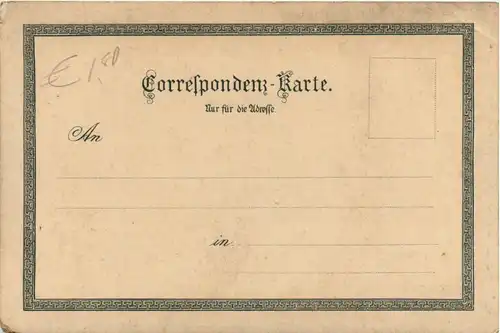 € 1,80
Correspondenz-Karte.
Nur für die Adresse
An
in